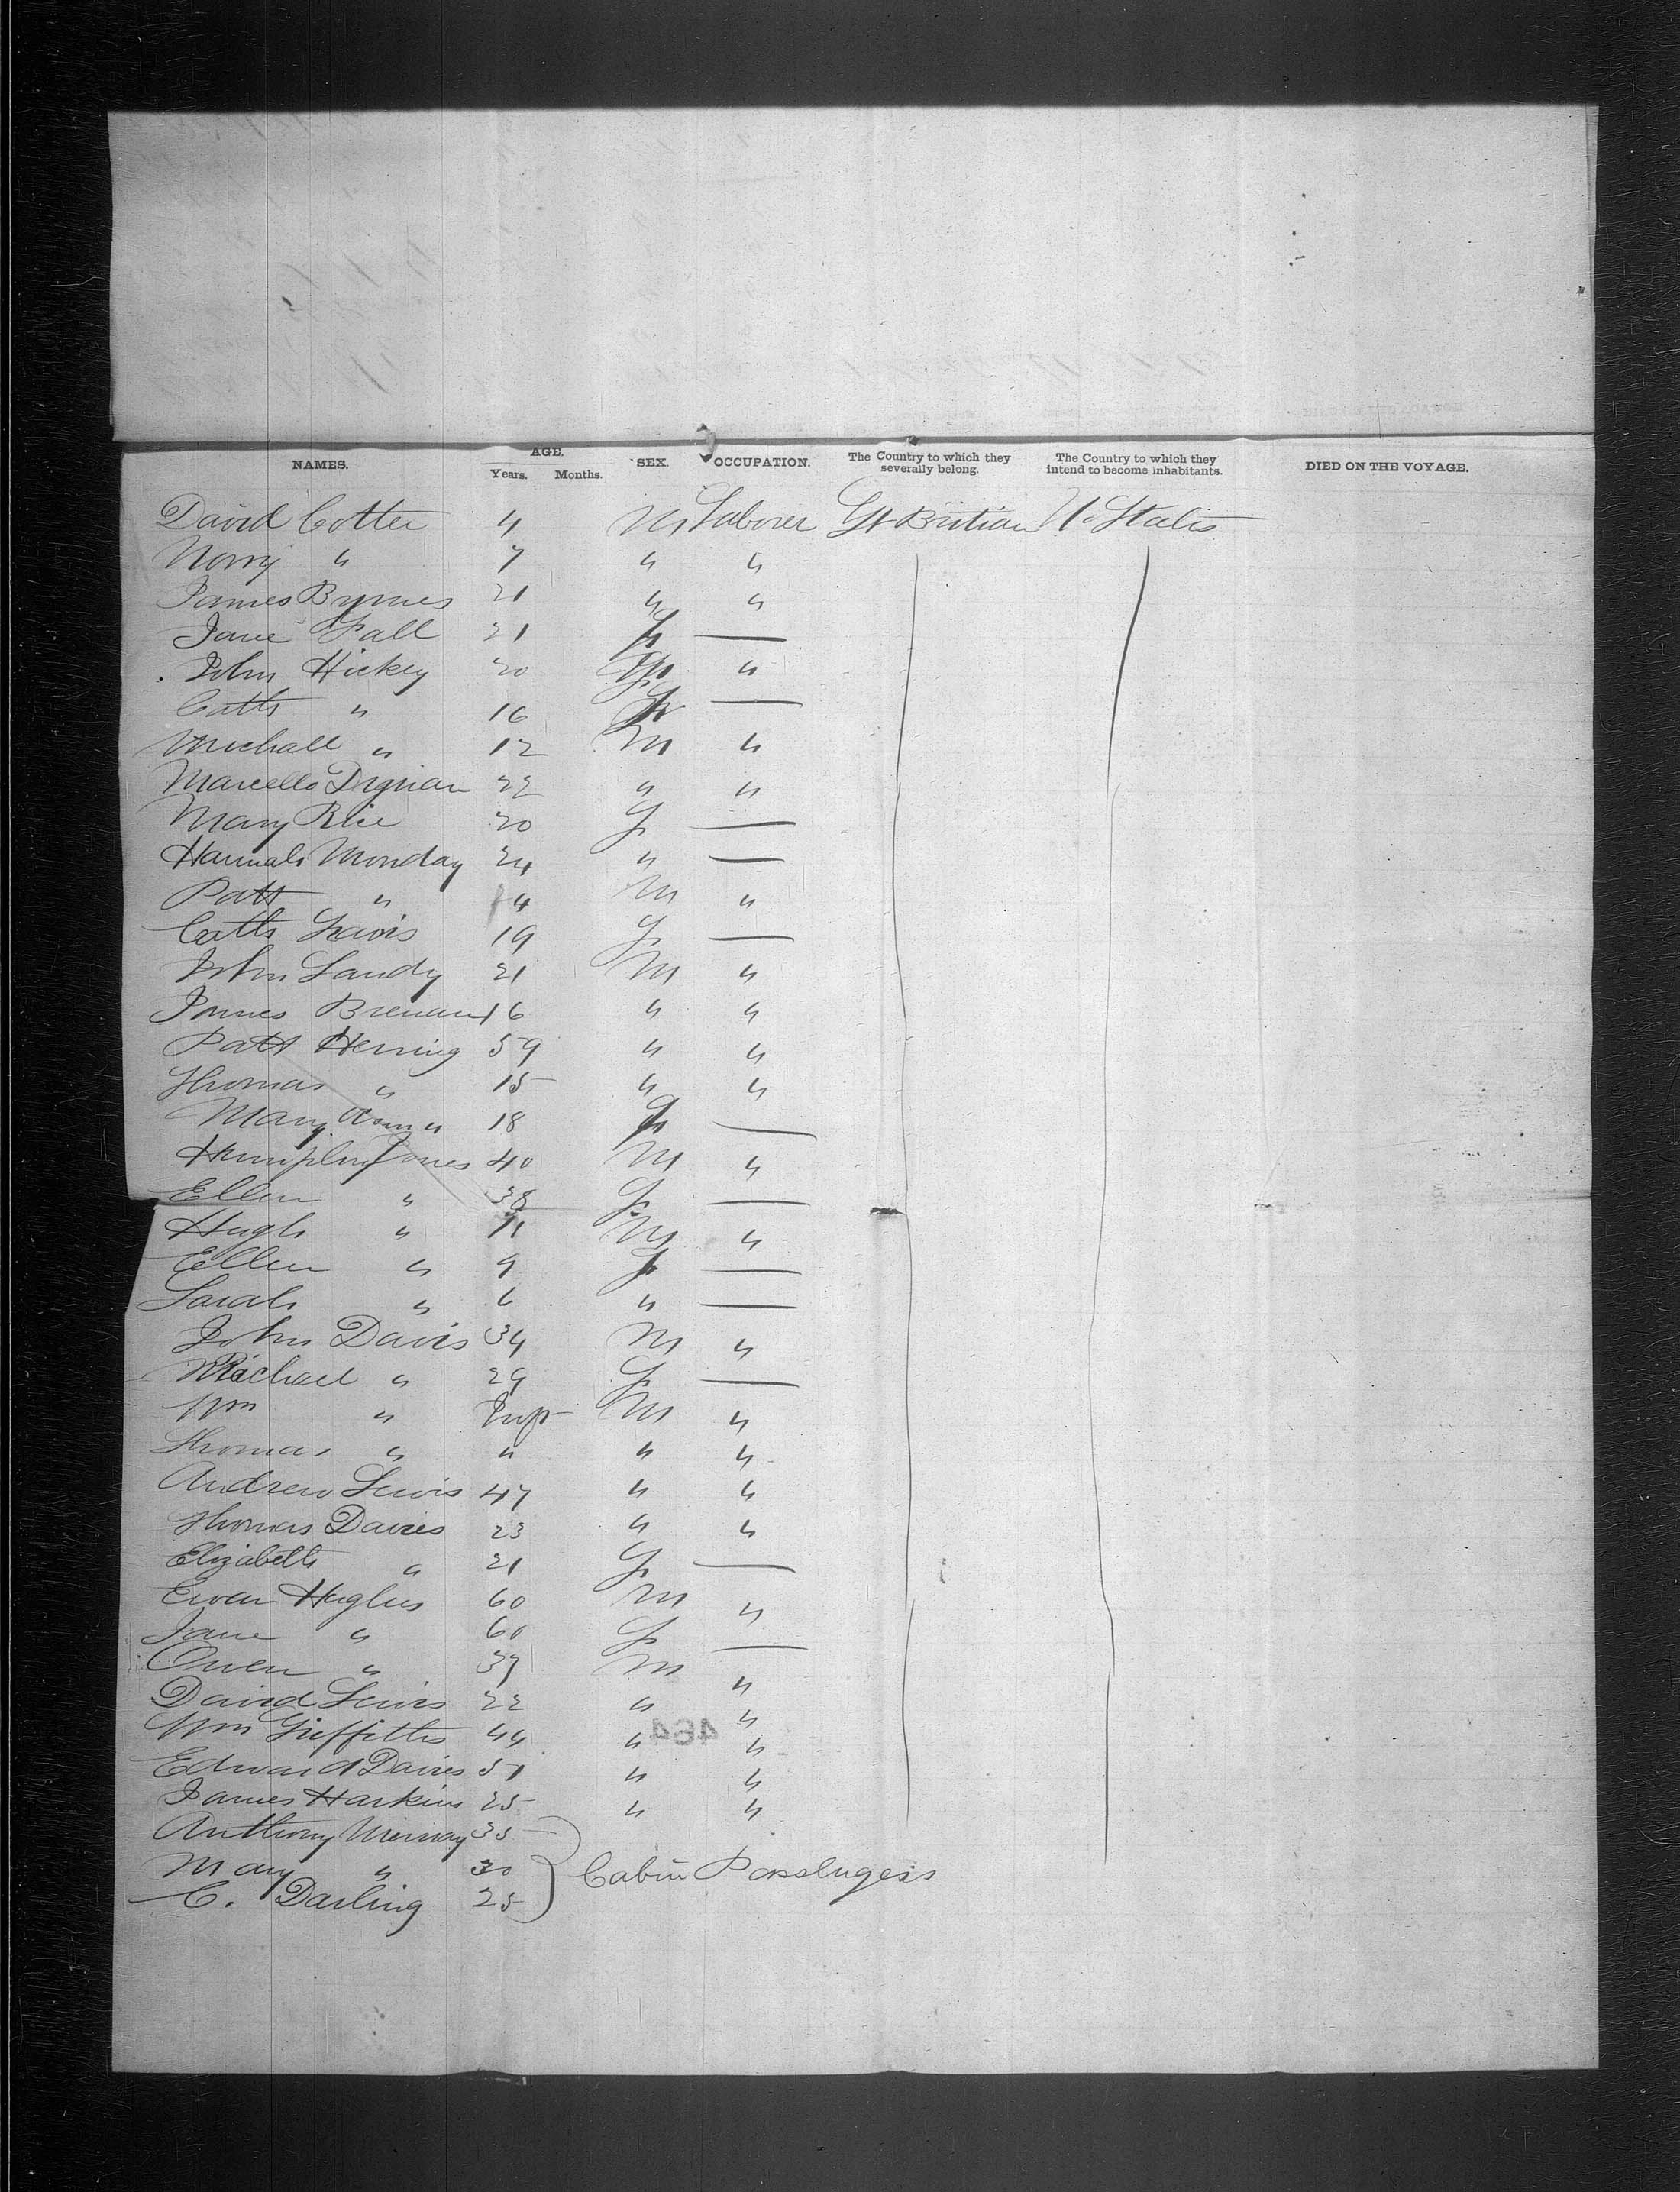 NAMES. AGE. Years. Months. SEX. OCCUPATION. The Country to which they severally belong. The Country to which they intend to become inhabitants. DIED ON THE VOYAGE.
David Cotter 4 M Laborer Gt Britian U. States
Norry " 7 " "
James Byrnes 21 " "
Jane Fall 21 F —
John Hickey 20 M "
Cath " 16 F —
Michall " 12 M "
Marcello Dignan 22 " "
Mary Rice 20 F —
Hannah Monday 24 " —
Patt " 4 M "
Cath Lewis 19 F —
John Landy 21 M "
James Brenan 16 " "
Patt Herring 59 " "
Thomas " 15 " "
Mary Ann " 18 F —
Humphry Jones 40 M "
Ellen " 38 F —
Hugh " 11 M "
Ellen " 9 F —
Sarah " 6 " —
John Davis 34 M "
Rachael " 29 F —
Wm " Inf M "
Thomas " " " "
Andrew Lewis 47 " "
Thomas Davies 23 " "
Elizabeth " 21 F —
Evan Hughes 60 M "
Jane " 60 F —
Owen " 37 M "
David Lewis 22 " "
Wm Griffiths 44 " "
464
Edward Davies 51 " "
James Harkins 25 " "
Anthony Murray 35
Mary " 30 Cabin Passengers
C. Darling 25